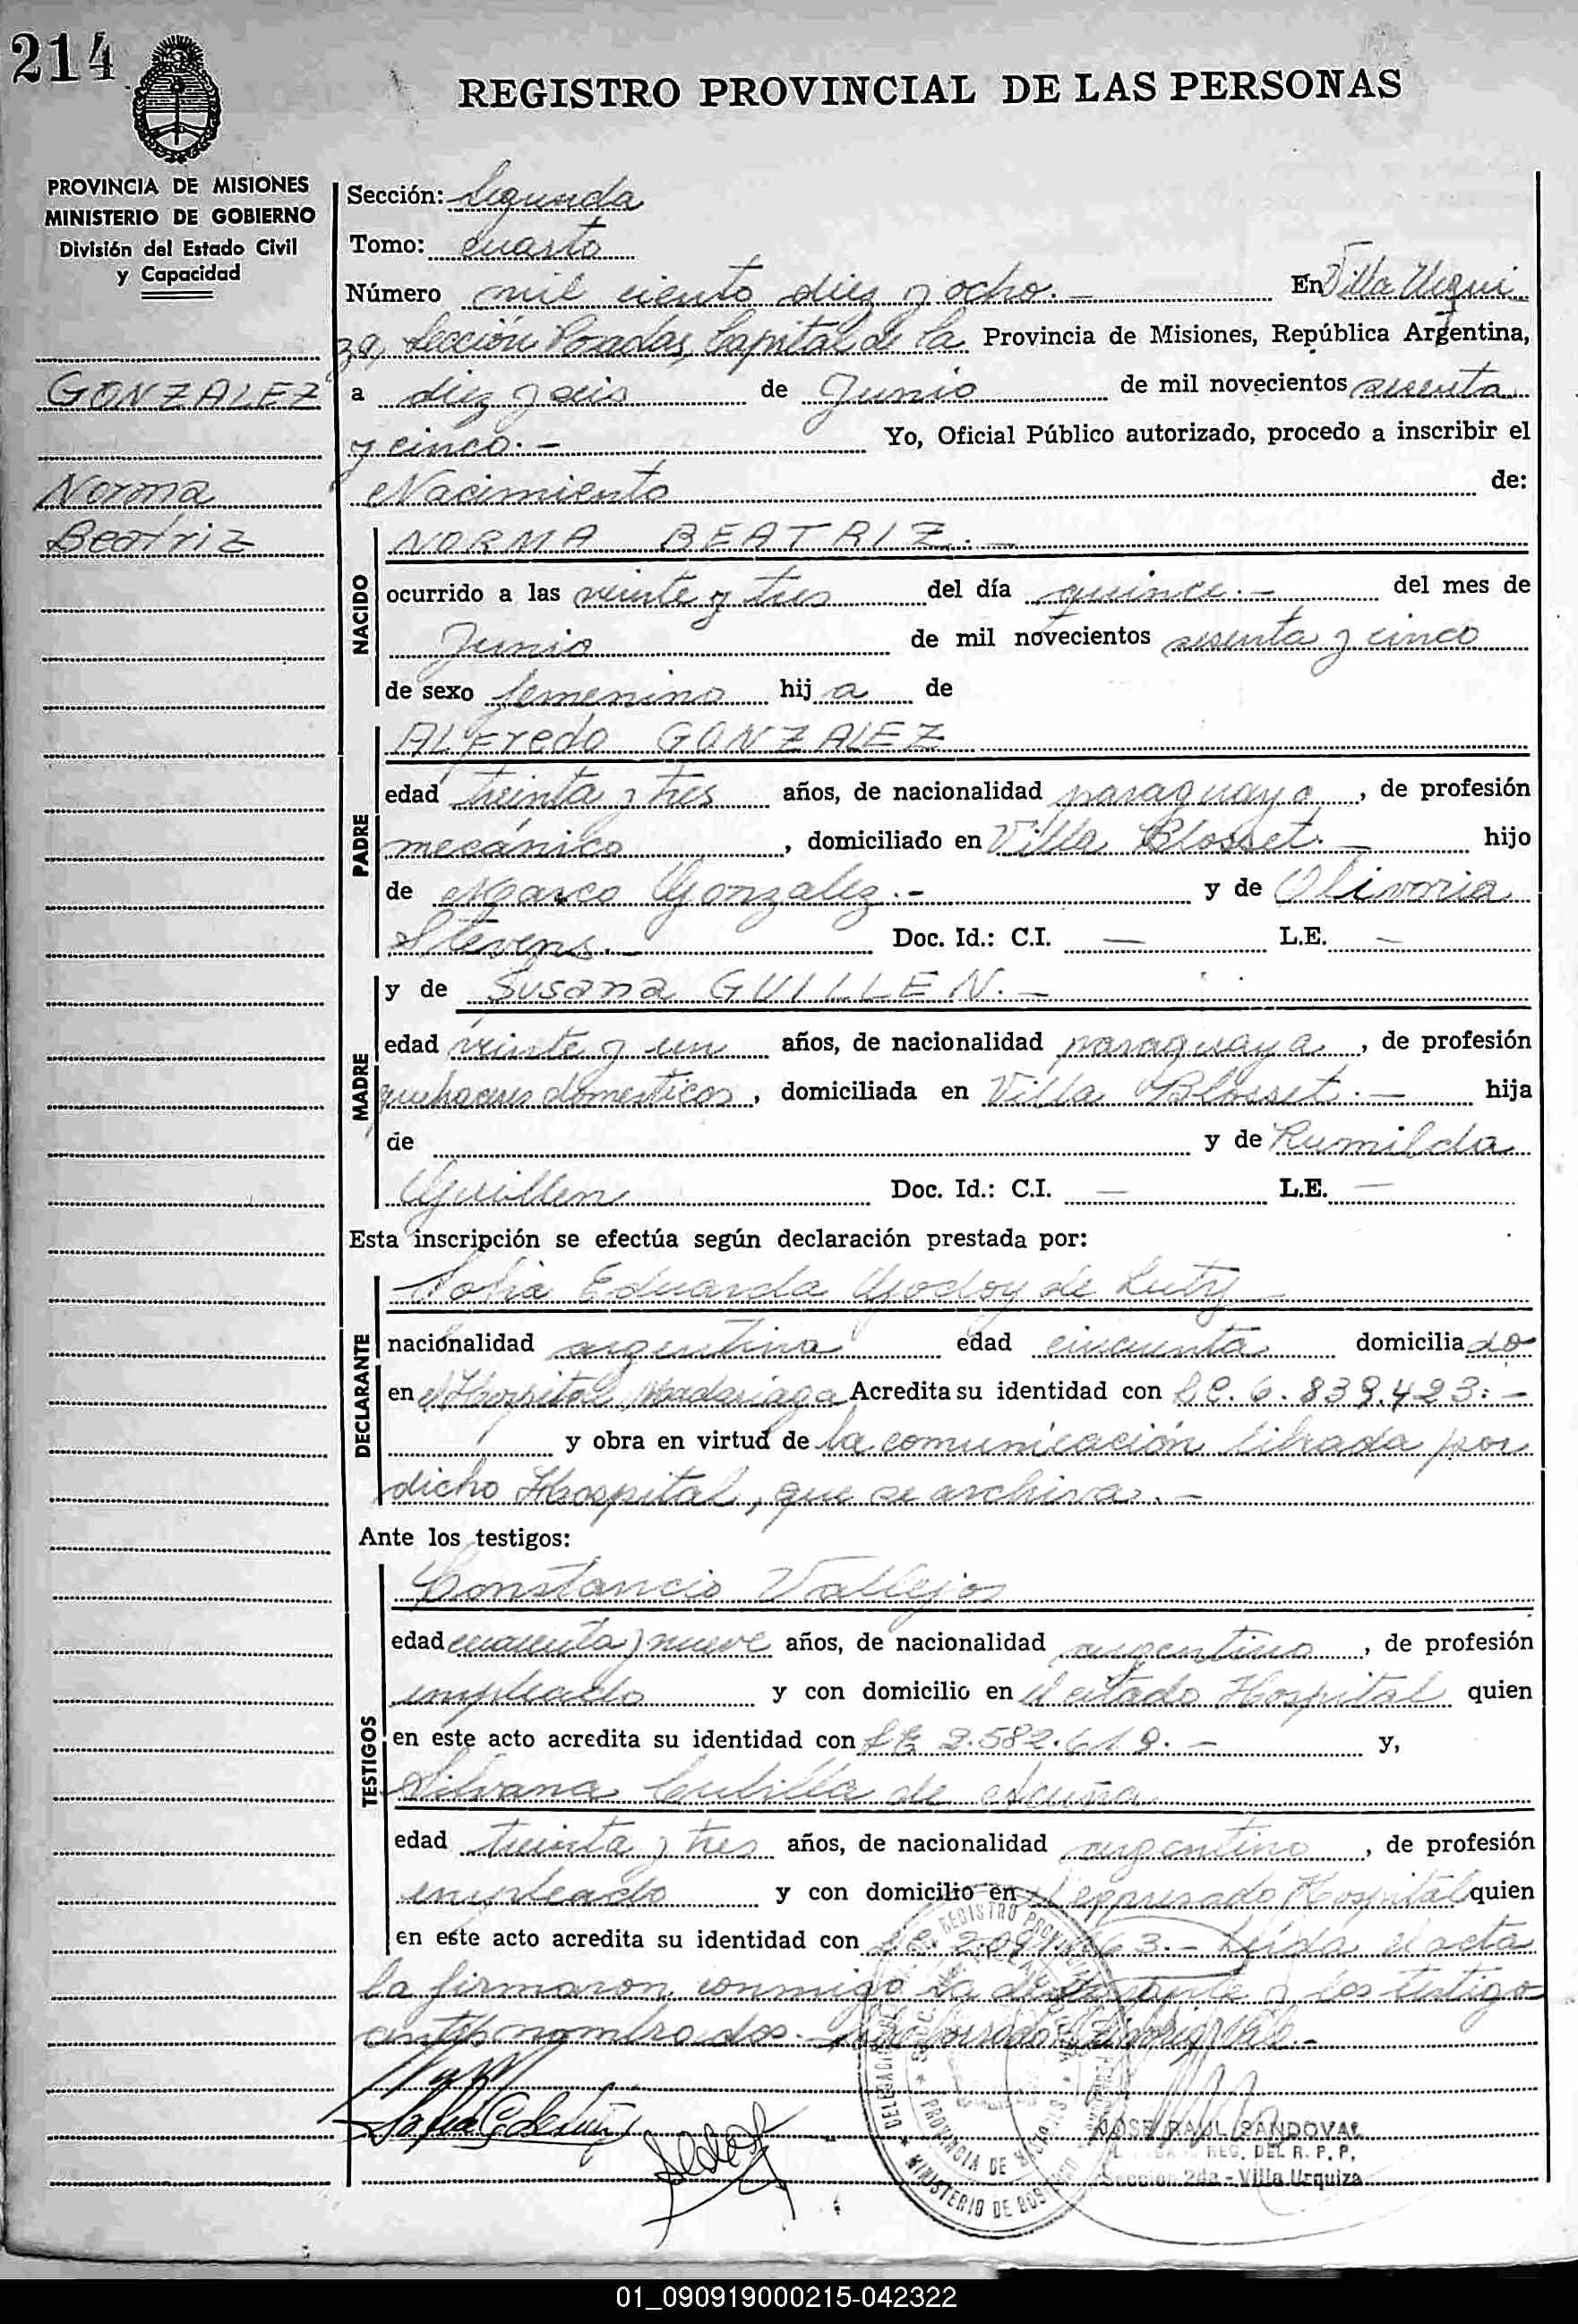 214
REGISTRO PROVINCIAL DE LAS PERSONAS
PROVINCIA DE MISIONES
MINISTERIO DE GOBIERNO
División del Estado Civil
y Capacidad
GONZALEZ
Norma
Beatriz
Sección: Segunda
Tomo: cuarto
Número mil ciento diez y ocho.- En Villa Urqui
za, Sección Posadas, Capital de la Provincia de Misiones, República Argentina,
a diez y seis de Junio de mil novecientos sesenta
y cinco.- Yo, Oficial Público autorizado, procedo a inscribir el
Nacimiento de:
NACIDO
NORMA BEATRIZ.-
ocurrido a las veinte y tres del día quince.- del mes de
Junio de mil novecientos sesenta y cinco
de sexo femenino hija de
PADRE
ALFredo GONZALEZ
edad treinta y tres años, de nacionalidad paraguayo, de profesión
mecánico, domiciliado en Villa Blosset.- hijo
de Marco Gonzalez.- y de Olivoria
Stevens.- Doc. Id.: C.I. — L.E. —
MADRE
y de Susana GUILLEN.-
edad veinte y un años, de nacionalidad paraguaya, de profesión
quehaceres domesticos, domiciliada en Villa Blosset.- hija
de y de Rumilda
Guillen Doc. Id.: C.I. — L.E. —
Esta inscripción se efectúa según declaración prestada por:
DECLARANTE
Sofia Eduarda Godoy de
nacionalidad argentina edad cincuenta domiciliado
en el Hospital Madariaga Acredita su identidad con L.C. 6.839.423.-
y obra en virtud de la comunicación librada por
dicho Hospital, que se archiva.-
Ante los testigos:
TESTIGOS
Constancio Vallejos
edad cuarenta y nueve años, de nacionalidad argentino, de profesión
empleado y con domicilio en el citado Hospital quien
en este acto acredita su identidad con 2.582.619.- y,
Silvana Cubilla de Acuña
edad treinta y tres años, de nacionalidad argentino, de profesión
empleado y con domicilio en el expresado Hospital quien
en este acto acredita su identidad con L.C. Leída el acta
la firmaron conmigo la declarante y los testigo
antes nombrados.- Vale.-
REGISTRO PROVINCIAL
PROVINCIA DE MISIONES
MINISTERIO DE GOBIERNO
JOSE RAUL SANDOVAL
REG. DEL R. P. P.
Sección 2da - Villa Urquiza
01_090919000215-042322